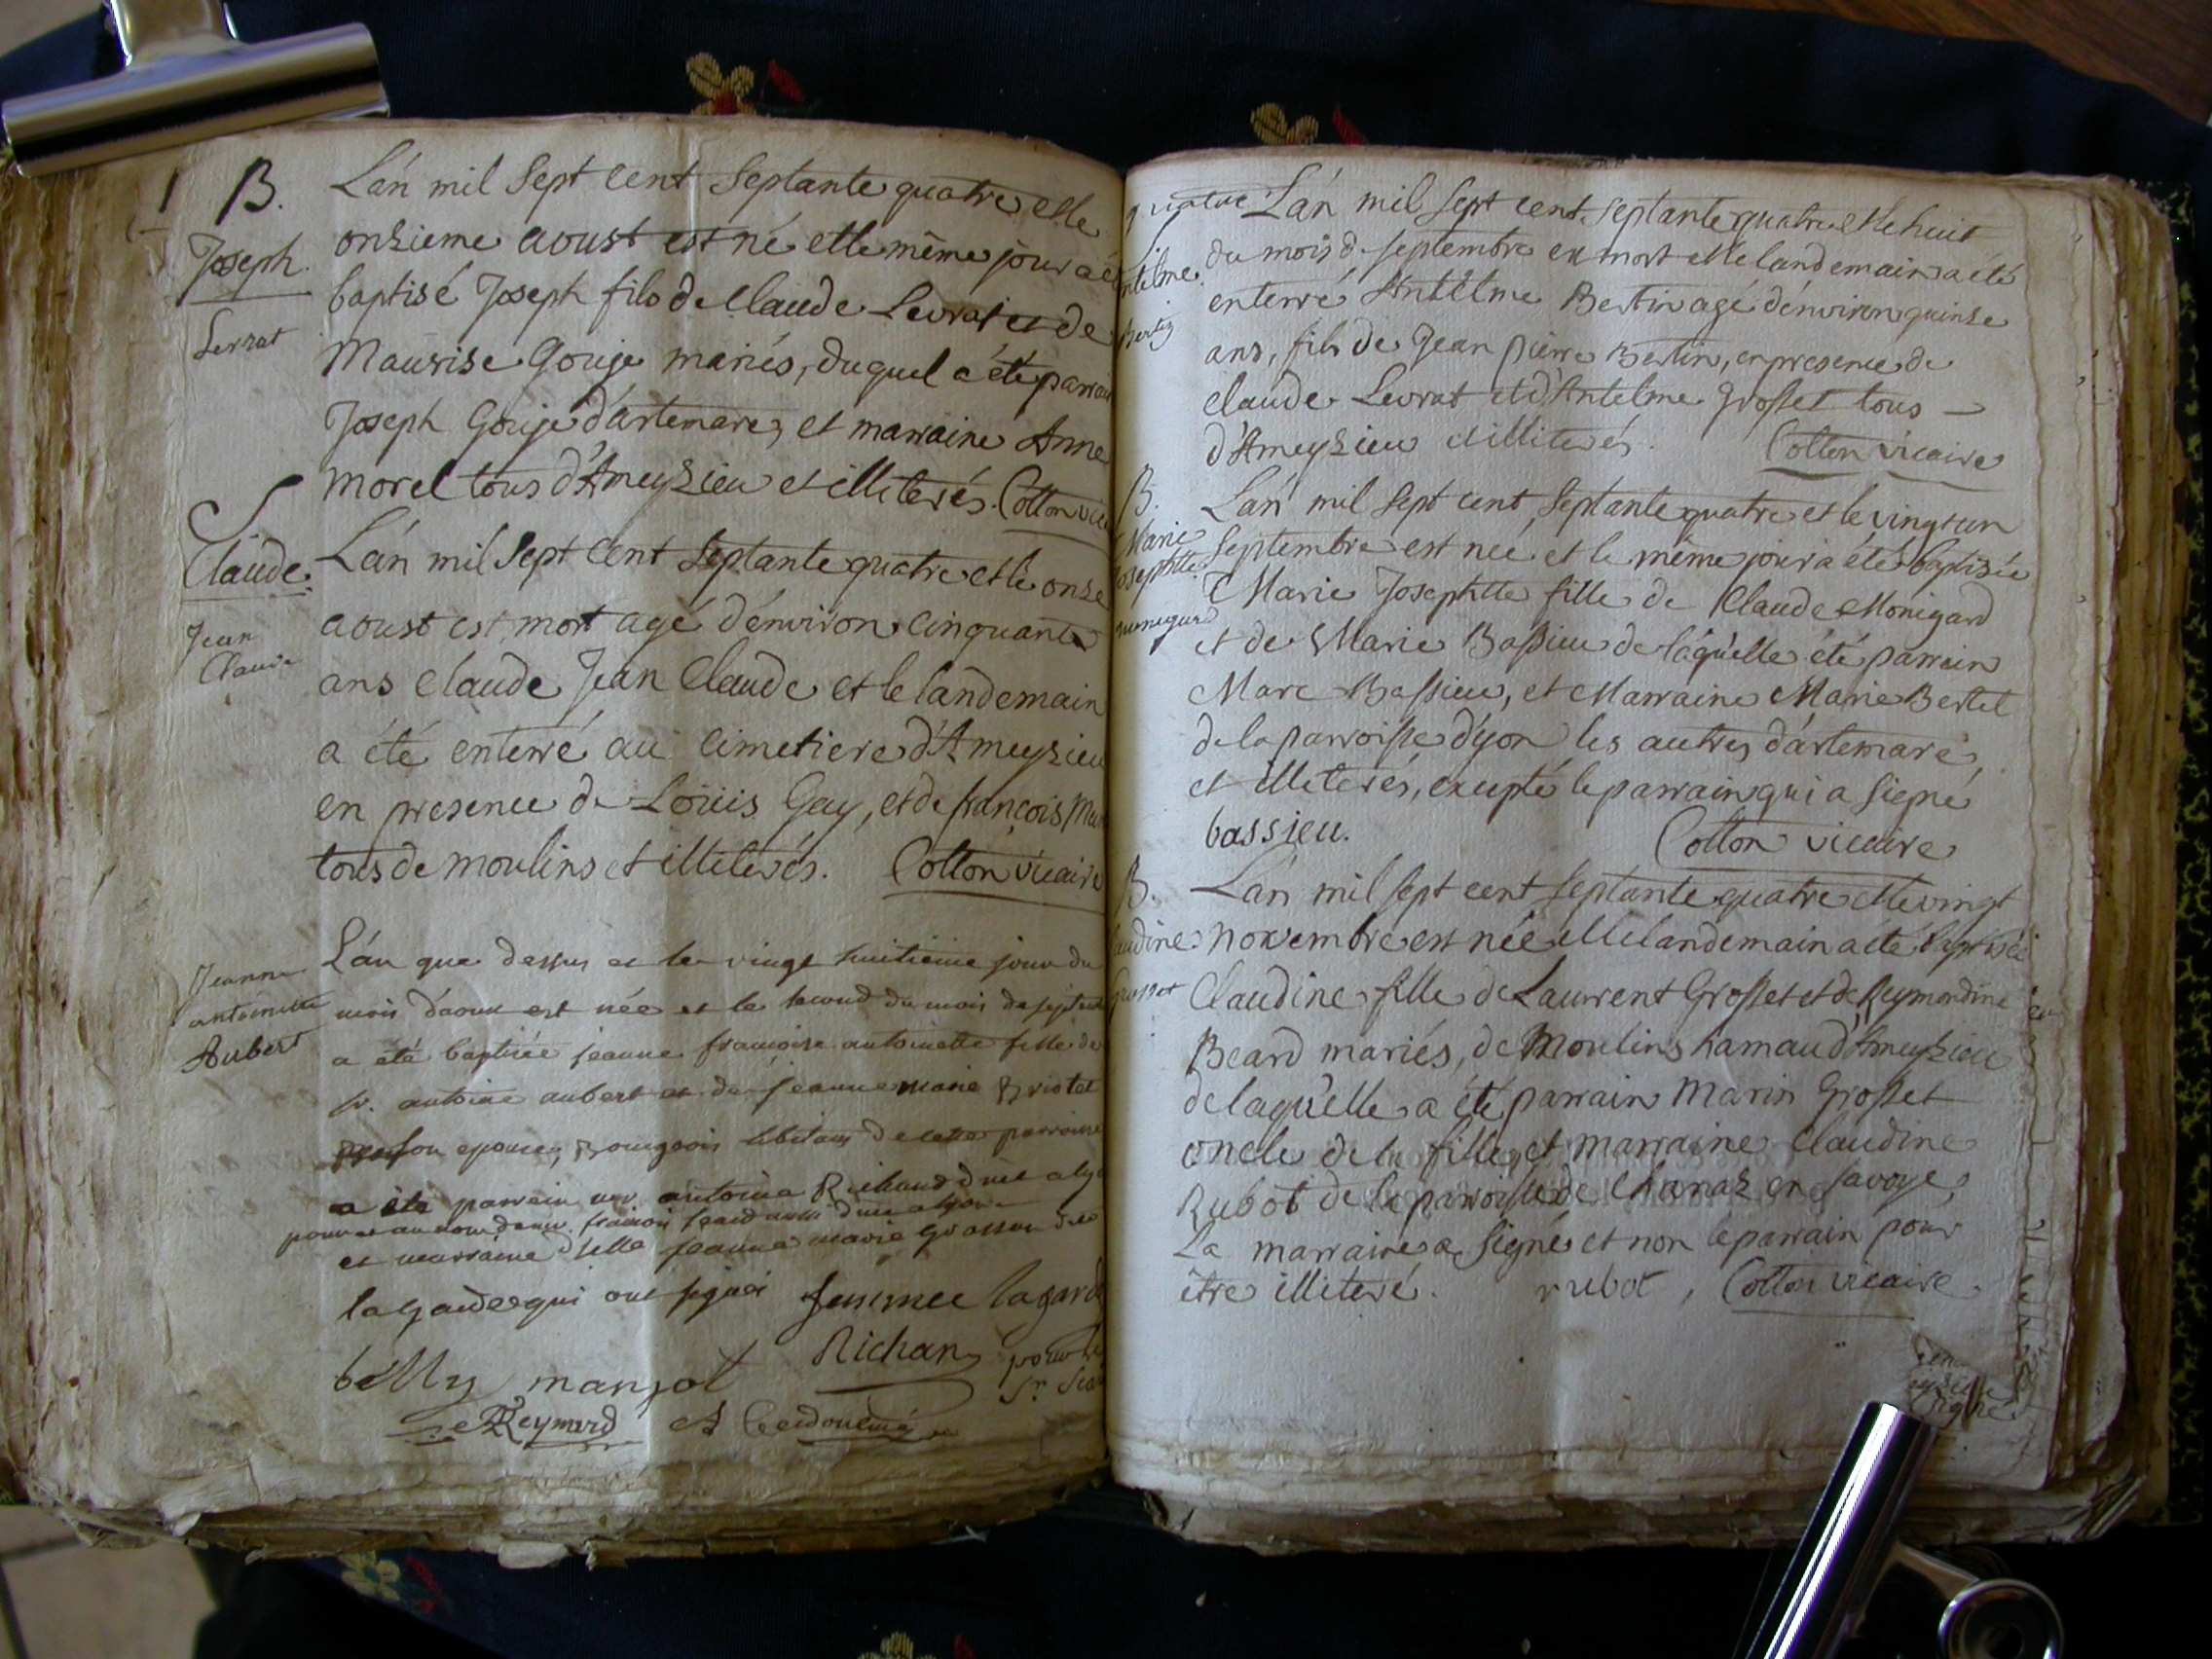 B.
Joseph
Levrat
Lán mil Sept Cent Septante quatre et le
onzieme aoust est né et le même jour a é
baptisé Joseph fils de Claude Levrat et de
Maurise Gouje mariés, duquel a été parrain
Joseph Gouje d'artemare, et marraine Anne
Morel tous d'Ameyzieu et illiterés. Cotton vic
S
Claude
Jean
Claude
Lán mil Sept Cent Septante quatre et le onze
aoust est mort agé d'environ cinquante
ans Claude Jean Claude et le landemain
a été enterré au Cimetiere d'Ameyzieu
en presence de Loüis Gay, et de françois
tous de moulins et illiterés. Cotton vicaire
Jeanne
antoinette
Aubert
L'án que dessus et le vingt huitieme jour du
mois d'aout est née et le second du mois de septem
a été baptisée jeanne françoise antoinette fille de
sr. antoine aubert et de jeanne marie Briotet
son epouse, Bourgeois habitans de cette parroisse
a été parrain antoine Richand
pour et au nom de françois
et marraine dselle jeanne marie
la garde qui ont signé femmee lagarde
Richan pour le
belly manjot
Reymard
quatre
ntelme
Bertin
Lán mil Sept cent Septante quatre et le huit
du mois de septembre est mort et le landemain a été
enterré Antelme Bertin agé d'environ quinze
ans, fils de Jean pierre Bertin, en presence de
claude Levrat et d'Antelme Grosset tous
d'Ameyzieu et illiterés. Cotton vicaire
B.
Marie
Josephtte
monigard
Lán mil Sept cent Septante quatre et le vingt un
Septembre est neé et le même jour a été baptisée
Marie Josephtte fille de Claude Monigard
et de Marie Bassieu de láquelle été parrain
Marc Bassieu, et Marraine Marie Bertet
de la parroisse d'yon les autres d'artemare,
et illiterés, excepté le parrain qui a signé
bassieu. Cotton vicaire
B.
audine
Grosset
Lán mil sept cent septante quatre et le vingt
Novembre est née et le landemain a été baptisée
Claudine fille de Laurent Grosset et de Reymondine
Beard mariés, de Moulins hamau d'Ameyzieu
de laquelle a été parrain Marin Grosset
oncle de la fille, et marraine Claudine
Rubot de la parroisse de Chanaz en Savoye,
La marraine a signé et non le parrain pour
être illiteré. rubot, Cotton vicaire.